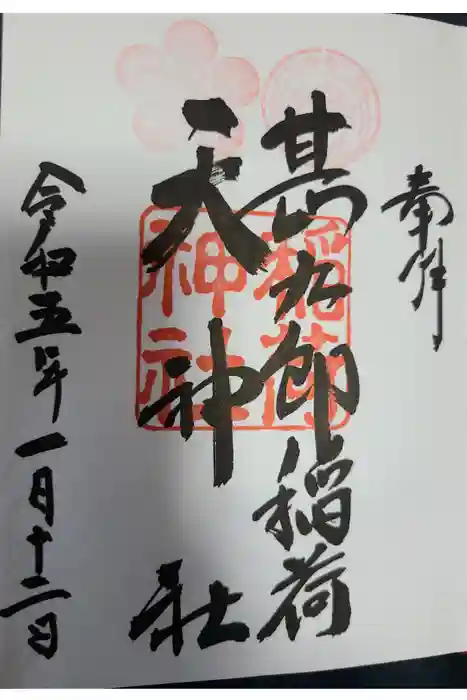 奉拝
甚九郎稲荷
天神社
稲荷
神社
令和五年一月十二日